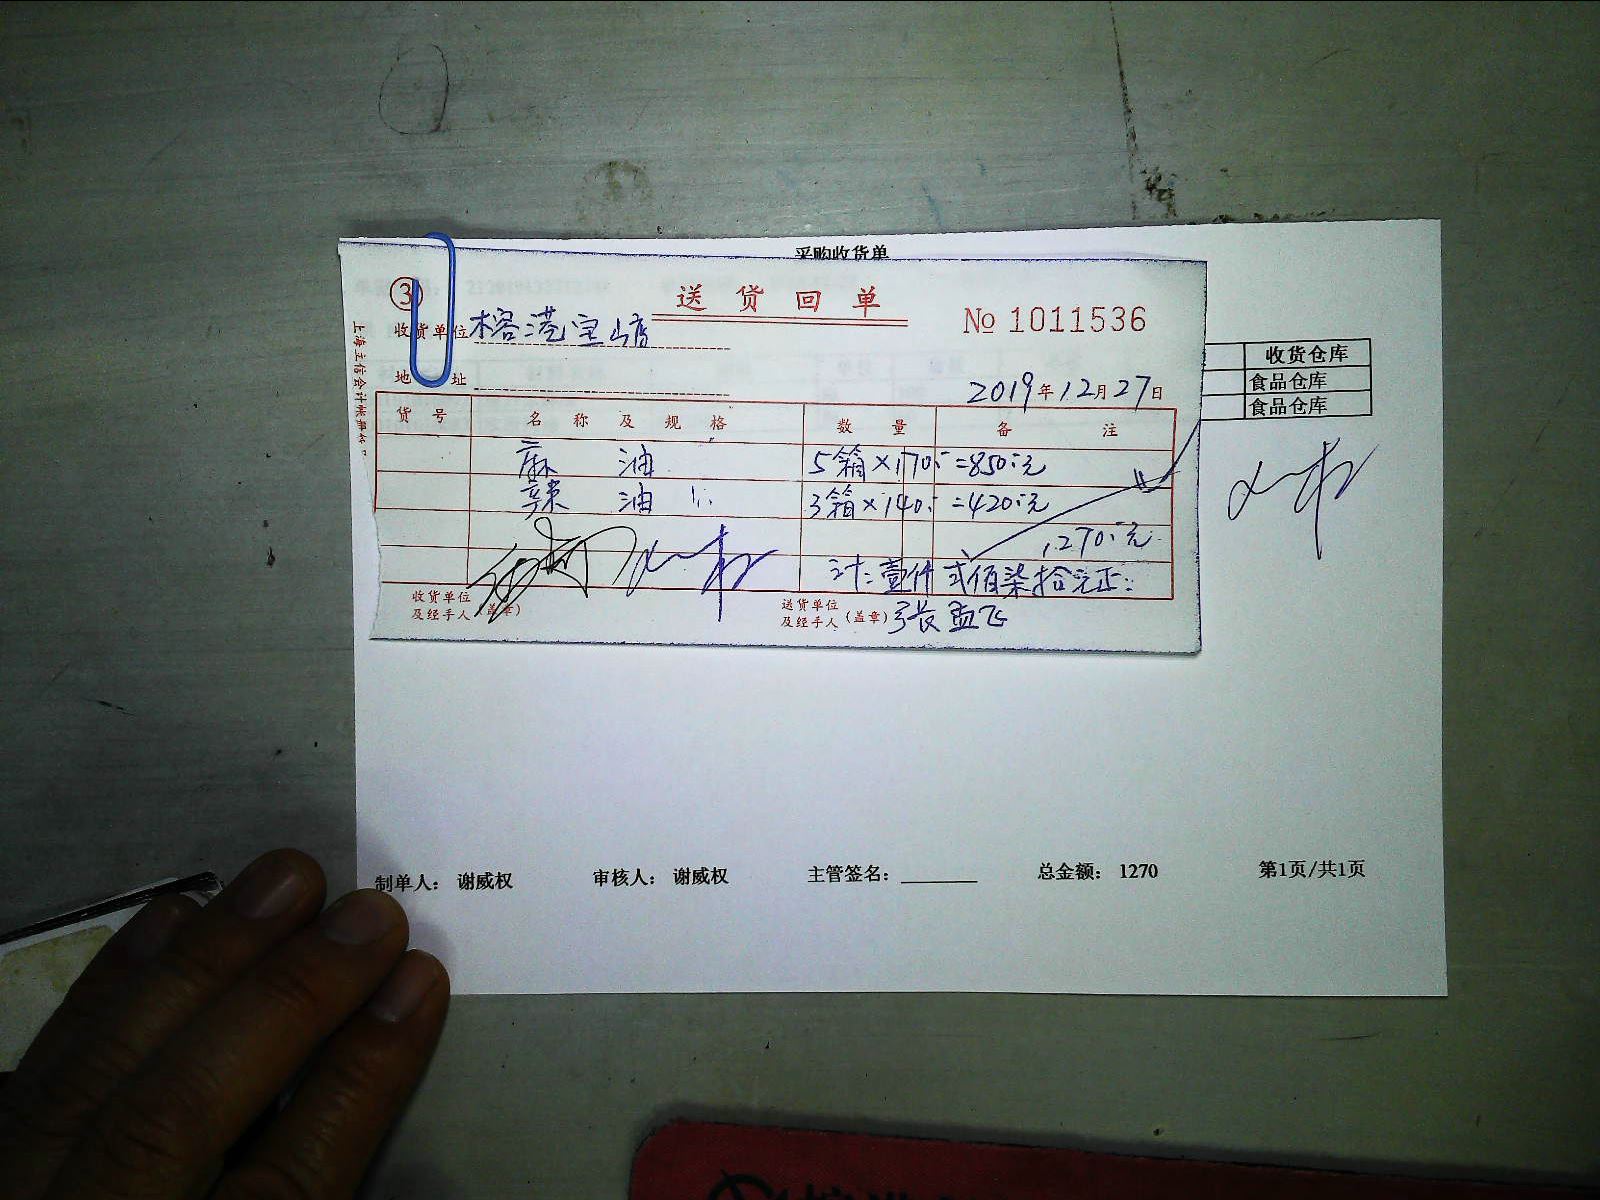 采购收货单
③
送货回单
№ 1011536
收货单位 榕港宝山店
地址
2019年12月27日
上海主信会计账册
收货仓库
食品仓库
食品仓库
货号 名称及规格 数量 备注
麻油 5箱×170:-=850元
辣油 3箱×140:-=420元
1270元
计:壹仟弍佰柒拾元正:
收货单位及经手人(盖章)
送货单位及经手人(盖章) 张孟飞
制单人: 谢威权 审核人: 谢威权 主管签名: 总金额: 1270 第1页/共1页